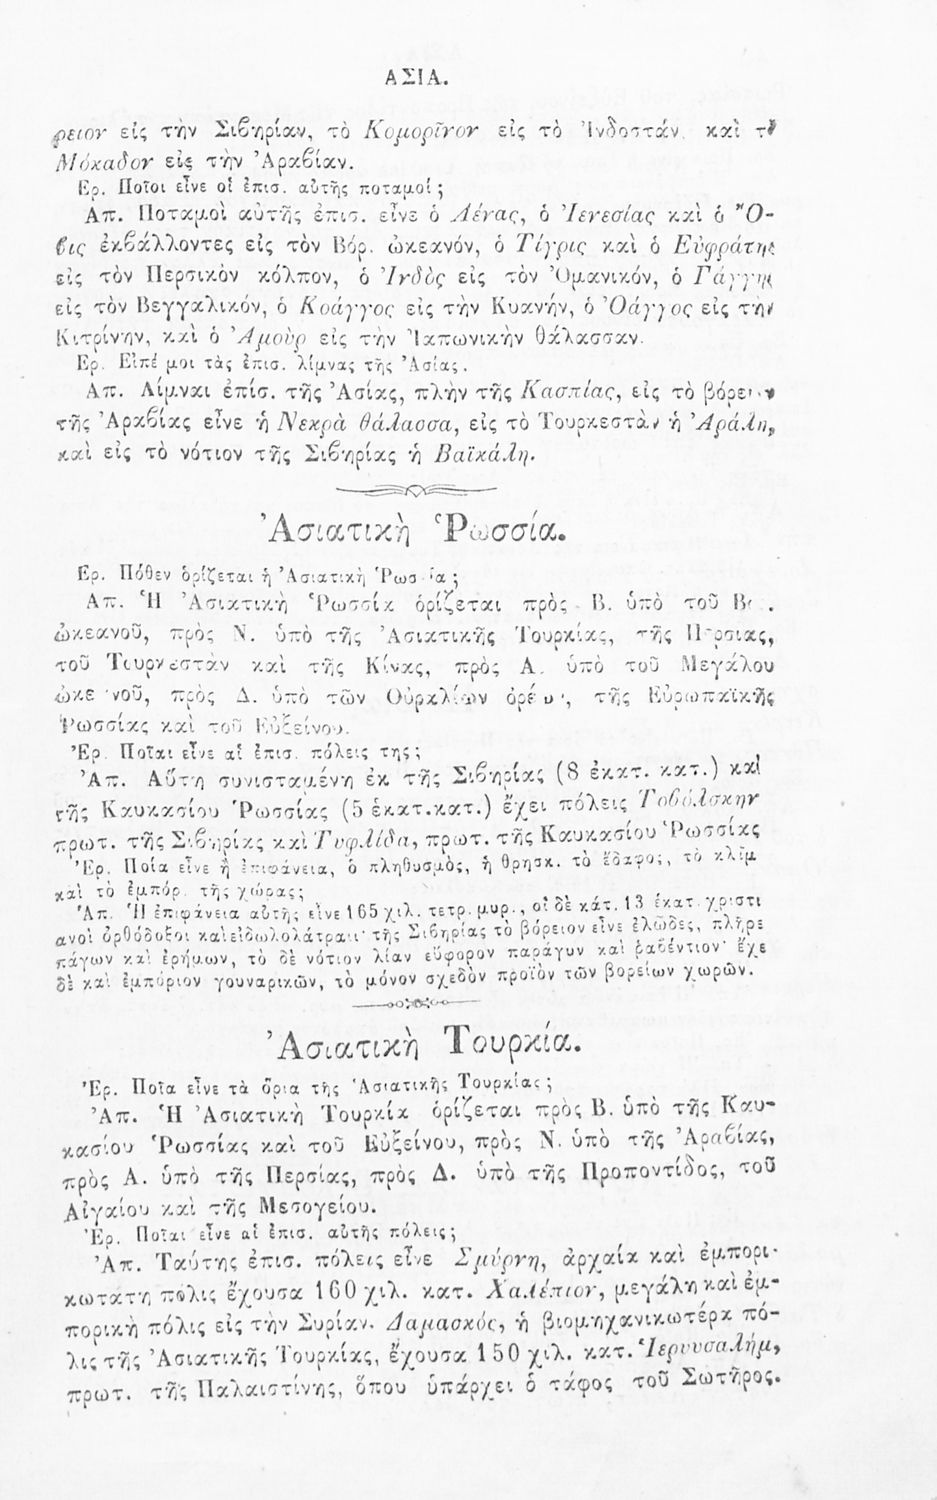 ΑΣΙΑ.
ρειον εἰς τὴν Σιβηρίαν, τὸ Κομορῖνον εἰς τὸ Ἰνδοστάν, καὶ τὸ
Μόκαδον εἰς τὴν Ἀραβίαν.
Ἐρ. Ποῖοι εἶνε οἱ ἐπισ. αὐτῆς ποταμοί;
Ἀπ. Ποταμοὶ αὐτῆς ἐπισ. εἶνε ὁ Λένας, ὁ Ἰενεσίας καὶ ὁ Ὄ-
βις ἐκβάλλοντες εἰς τὸν Βόρ. ὠκεανόν, ὁ Τίγρις καὶ ὁ Εὐφράτης
εἰς τὸν Περσικὸν κόλπον, ὁ Ἰνδὸς εἰς τὸν Ὀμανικόν, ὁ Γάγγης
εἰς τὸν Βεγγαλικόν, ὁ Κοάγγος εἰς τὴν Κυανήν, ὁ Ὀάγγος εἰς τὴν
Κιτρίνην, καὶ ὁ Ἀμοὺρ εἰς τὴν Ἰαπωνικὴν θάλασσαν.
Ἐρ. Εἰπέ μοι τὰς ἐπισ. λίμνας τῆς Ἀσίας.
Ἀπ. Λίμναι ἐπίσ. τῆς Ἀσίας, πλὴν τῆς Κασπίας, εἰς τὸ βόρειον
τῆς Ἀραβίας εἶνε ἡ Νεκρὰ θάλασσα, εἰς τὸ Τουρκεστὰν ἡ Ἀράλη,
καὶ εἰς τὸ νότιον τῆς Σιβηρίας ἡ Βαϊκάλη.
Ἀσιατικὴ Ῥωσσία.
Ἐρ. Πόθεν ὁρίζεται ἡ Ἀσιατικὴ Ῥωσσία;
Ἀπ. Ἡ Ἀσιατικὴ Ῥωσσία ὁρίζεται πρὸς Β. ὑπὸ τοῦ Β.
ὠκεανοῦ, πρὸς Ν. ὑπὸ τῆς Ἀσιατικῆς Τουρκίας, τῆς Περσίας,
τοῦ Τουρκεστὰν καὶ τῆς Κίνας, πρὸς Α. ὑπὸ τοῦ Μεγάλου
ὠκεανοῦ, πρὸς Δ. ὑπὸ τῶν Οὐραλίων ὀρέων, τῆς Εὐρωπαϊκῆς
Ῥωσσίας καὶ τοῦ Εὐξείνου.
Ἐρ. Ποῖαι εἶνε αἱ ἐπισ. πόλεις της;
Ἀπ. Αὕτη συνισταμένη ἐκ τῆς Σιβηρίας (8 ἑκατ. κατ.) καὶ
τῆς Καυκασίου Ῥωσσίας (5 ἑκατ.κατ.) ἔχει πόλεις Τοβόλσκην
πρωτ. τῆς Σιβηρίας καὶ Τυφλίδα, πρωτ. τῆς Καυκασίου Ῥωσσίας
Ἐρ. Ποία εἶνε ἡ ἐπιφάνεια, ὁ πληθυσμὸς, ἡ θρησκ. τὸ ἔδαφος, τὸ κλῖμ
καὶ τὸ ἐμπόρ. τῆς χώρας;
Ἀπ. Ἡ ἐπιφάνεια αὐτῆς εἶνε 165 χιλ. τετρ. μυρ., οἱ δὲ κάτ. 13 ἑκατ. χριστι
ανοὶ ὀρθόδοξοι καὶ εἰδωλολάτραι· τῆς Σιβηρίας τὸ βόρειον εἶνε ἑλῶδες, πλῆρε
πάγων καὶ ἐρήμων, τὸ δὲ νότιον λίαν εὔφορον παράγον καὶ ῥαβέντιον· ἔχε
δὲ καὶ ἐμπόριον γουναρικῶν, τὸ μόνον σχεδὸν προϊὸν τῶν βορείων χωρῶν.
Ἀσιατικὴ Τουρκία.
Ἐρ. Ποῖα εἶνε τὰ ὅρια τῆς Ἀσιατικῆς Τουρκίας;
Ἀπ. Ἡ Ἀσιατικὴ Τουρκία ὁρίζεται πρὸς Β. ὑπὸ τῆς Καυ-
κασίου Ῥωσσίας καὶ τοῦ Εὐξείνου, πρὸς Ν. ὑπὸ τῆς Ἀραβίας,
πρὸς Α. ὑπὸ τῆς Περσίας, πρὸς Δ. ὑπὸ τῆς Προποντίδος, τοῦ
Αἰγαίου καὶ τῆς Μεσογείου.
Ἐρ. Ποῖαι εἶνε αἱ ἐπισ. αὐτῆς πόλεις;
Ἀπ. Ταύτης ἐπισ. πόλεις εἶνε Σμύρνη, ἀρχαία καὶ ἐμπορι-
κωτάτη πόλις ἔχουσα 160 χιλ. κατ. Χαλέπιον, μεγάλη καὶ ἐμ-
πορικὴ πόλις εἰς τὴν Συρίαν. Δαμασκός, ἡ βιομηχανικωτέρα πό-
λις τῆς Ἀσιατικῆς Τουρκίας, ἔχουσα 150 χιλ. κατ. Ἱερουσαλήμ,
πρωτ. τῆς Παλαιστίνης, ὅπου ὑπάρχει ὁ τάφος τοῦ Σωτῆρος.